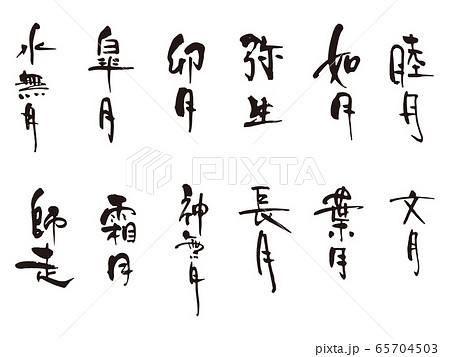 睦月
如月
弥生
卯月
皐月
水無月
文月
葉月
長月
神無月
霜月
師走
PIXTA
pixta.jp - 65704503